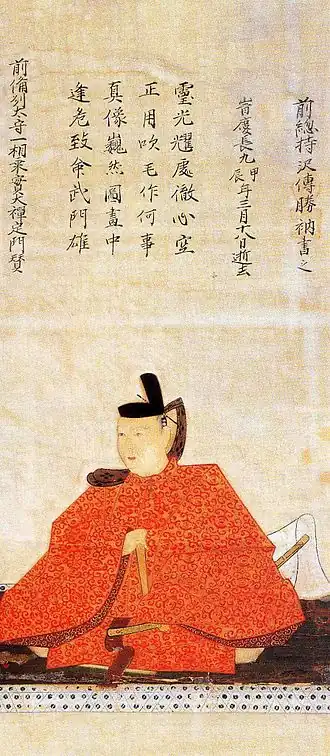 前備刕太守一相來實大禪定門賛
逢危致命武門雄
真像巍然圖畫中
正用吹毛作何事
靈光耀處徹心空
旹慶長九甲辰年三月十八日逝去
前總持沢傳勝衲書之